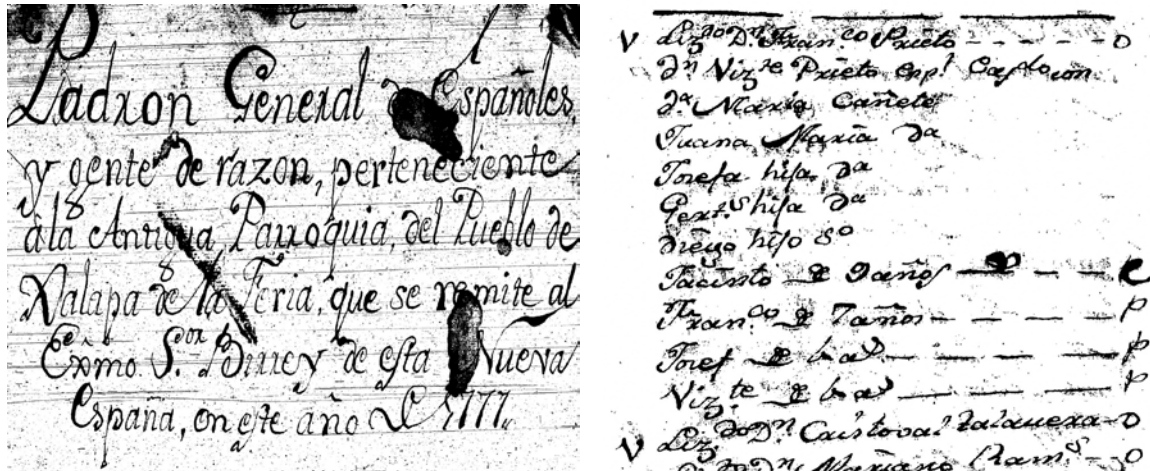 Padron General de Españoles,
y gente de razon, perteneciente
à la Antigua Parroquia, del Pueblo de
Xalapa de la Feria, que se remite al
Exmo S.or Birrey de esta Nueva
España, en este año de 1777.
V Liz.do D.n Fran.co Prieto - - - - - O
D.n Viz.te Prieto esp.l Cas.do con
D.a Maria Cañete
Juana Maria da
Josefa hija da
hija da
Diego hijo so
Jacinto de 9 años — — — — C
Fran.co de 7 años — — — — P
Josef de — — — — P
Viz.te de — — — — P
V Liz.do D.n Cristoval Talavera - O
D.n Mariano - - O